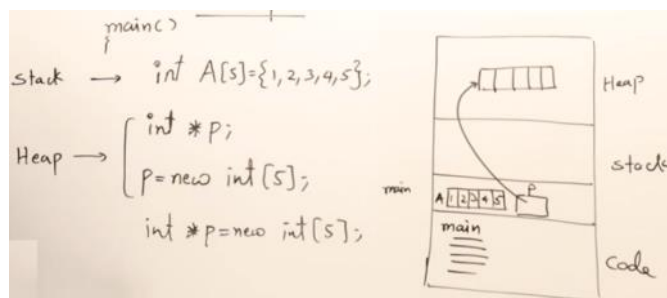 main()
{
stack → int A[5]={1,2,3,4,5};
Heap → { int *p;
p=new int[5];
int *p=new int[5];
Heap
stack
main A 1 2 3 4 5 P
main
Code